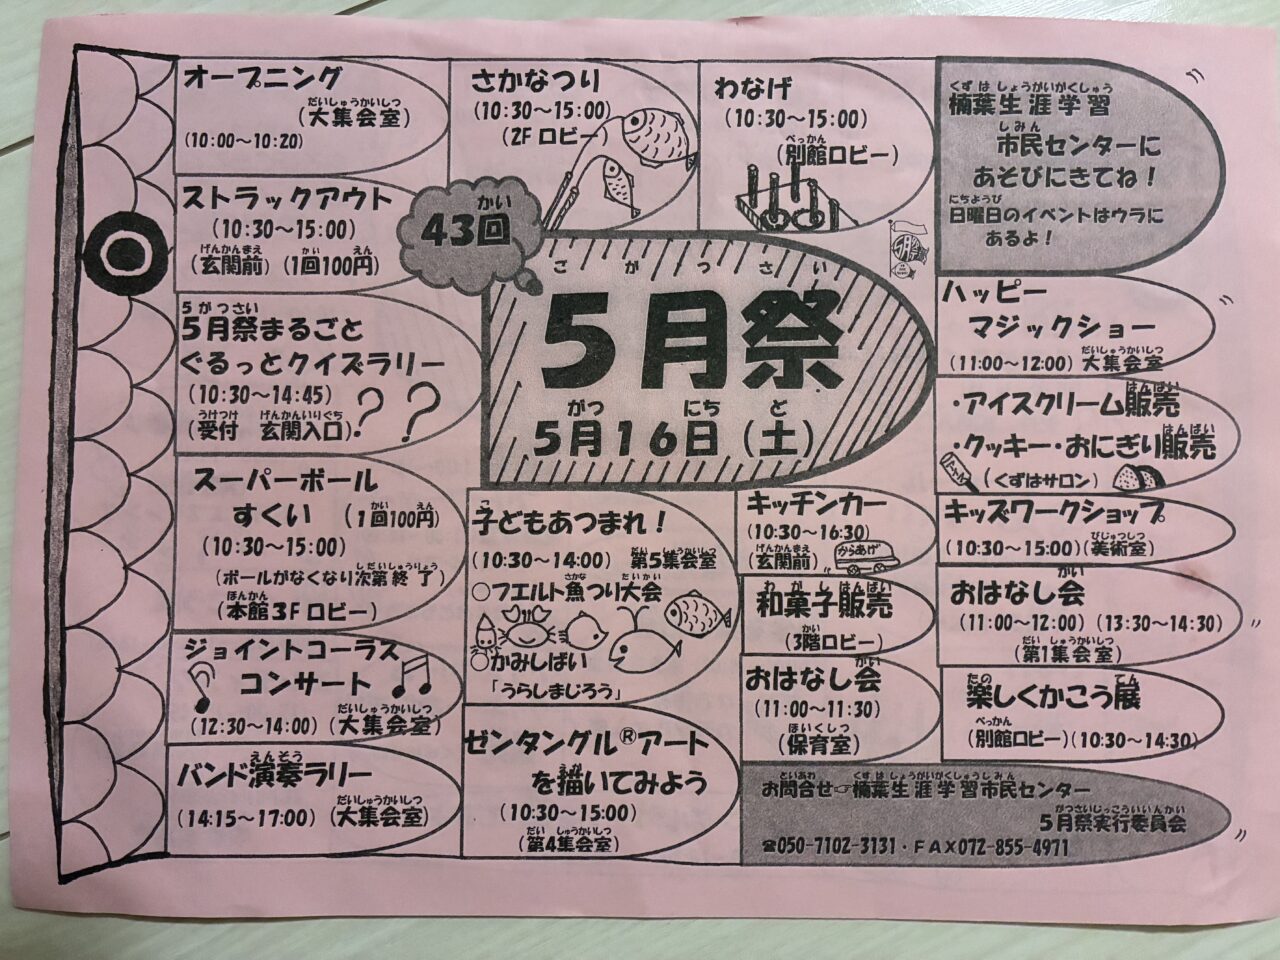 オープニング
(大集会室)
だいしゅうかいしつ
(10:00～10:20)
さかなつり
(10:30～15:00)
(2F ロビー)
わなげ
(10:30～15:00)
べっかん
(別館ロビー)
くずはしょうがいがくしゅう
楠葉生涯学習
しみん
市民センターに
あそびにきてね！
にちようび
日曜日のイベントはウラに
あるよ！
ストラックアウト
(10:30～15:00)
げんかんまえ かい えん
(玄関前) (1回100円)
かい
43回
ごがつさい
5月祭
がつ にち ど
5月16日(土)
5がつさい
5月祭まるごと
ぐるっとクイズラリー
(10:30～14:45)
うけつけ げんかんいりぐち
(受付 玄関入口)
? ?
ハッピー
マジックショー
だいしゅうかいしつ
(11:00～12:00) 大集会室
はんばい
・アイスクリーム販売
はんばい
・クッキー・おにぎり販売
(くずはサロン)
スーパーボール
かい えん
すくい (1回100円)
(10:30～15:00)
しだいしゅうりょう
(ボールがなくなり次第終了)
ほんかん
(本館3Fロビー)
こ
子どもあつまれ！
だい しゅうかいしつ
(10:30～14:00) 第5集会室
さかな たいかい
○フエルト魚つり大会
○かみしばい
「うらしまじろう」
キッチンカー
(10:30～16:30)
げんかんまえ
(玄関前)
からあげ
わがしはんばい
和菓子販売
かい
(3階ロビー)
キッズワークショップ
びじゅつしつ
(10:30～15:00)(美術室)
かい
おはなし会
(11:00～12:00) (13:30～14:30)
だい しゅうかいしつ
(第1集会室)
ジョイントコーラス
コンサート
だいしゅうかいしつ
(12:30～14:00) (大集会室)
かい
おはなし会
(11:00～11:30)
ほいくしつ
(保育室)
たの てん
楽しくかこう展
べっかん
(別館ロビー)(10:30～14:30)
えんそう
バンド演奏ラリー
だいしゅうかいしつ
(14:15～17:00) (大集会室)
ゼンタングル®アート
えが
を描いてみよう
(10:30～15:00)
だい しゅうかいしつ
(第4集会室)
といあわ くずはしょうがいがくしゅうしみん
お問合せ☞楠葉生涯学習市民センター
がつさいじっこういいんかい
5月祭実行委員会
☎050-7102-3131・FAX072-855-4971